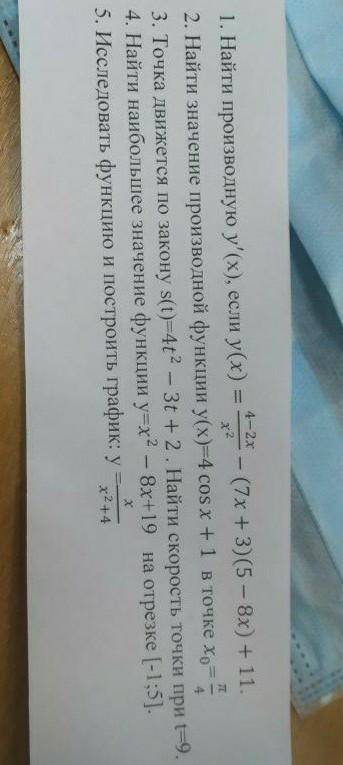 1. Найти производную y′(x), если y(x) = \frac{4-2x}{x^2} − (7x + 3)(5 − 8x) + 11.
2. Найти значение производной функции y(x)=4 cos x + 1 в точке x_0 = \frac{π}{4}
3. Точка движется по закону s(t)=4t^2 − 3t + 2 . Найти скорость точки при t=9.
4. Найти наибольшее значение функции y=x^2 − 8x+19 на отрезке [-1;5].
5. Исследовать функцию и построить график: y = \frac{x}{x^2+4}